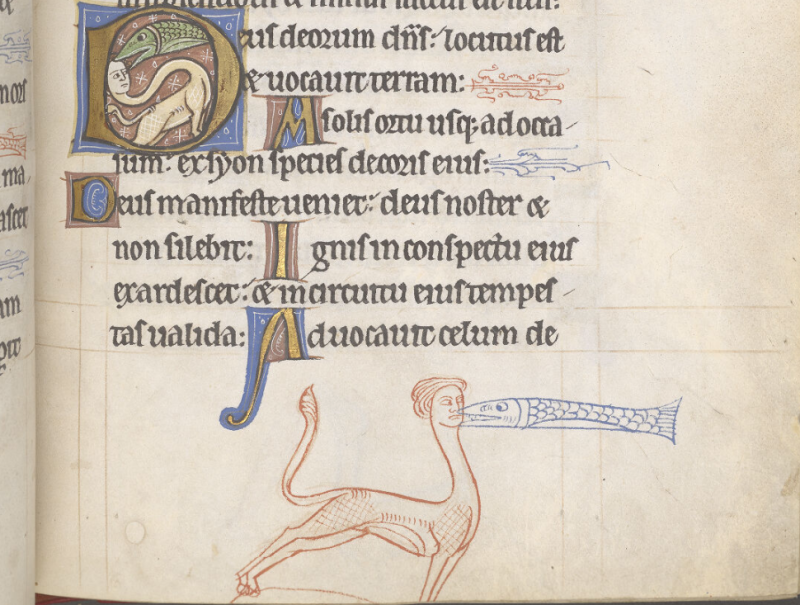 Deus deorum dn̄s: locutus est
& uocauit terram:
A solis ortu usq; ad occa-
sum: ex syon species decoris eius:
Deus manifeste ueniet: deus noster &
non silebit: Ignis in conspectu eius
exardescet: & in circuitu eius tempes-
tas ualida: Aduocauit celum de